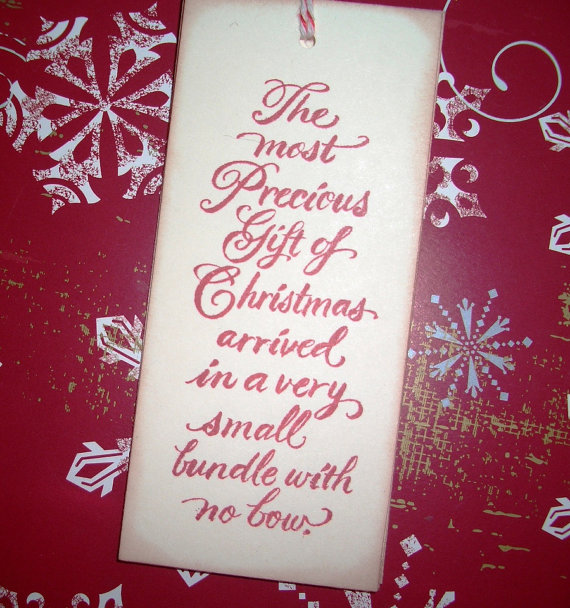 The
most
Precious
Gift of
Christmas
arrived
in a very
small
bundle with
no bow.